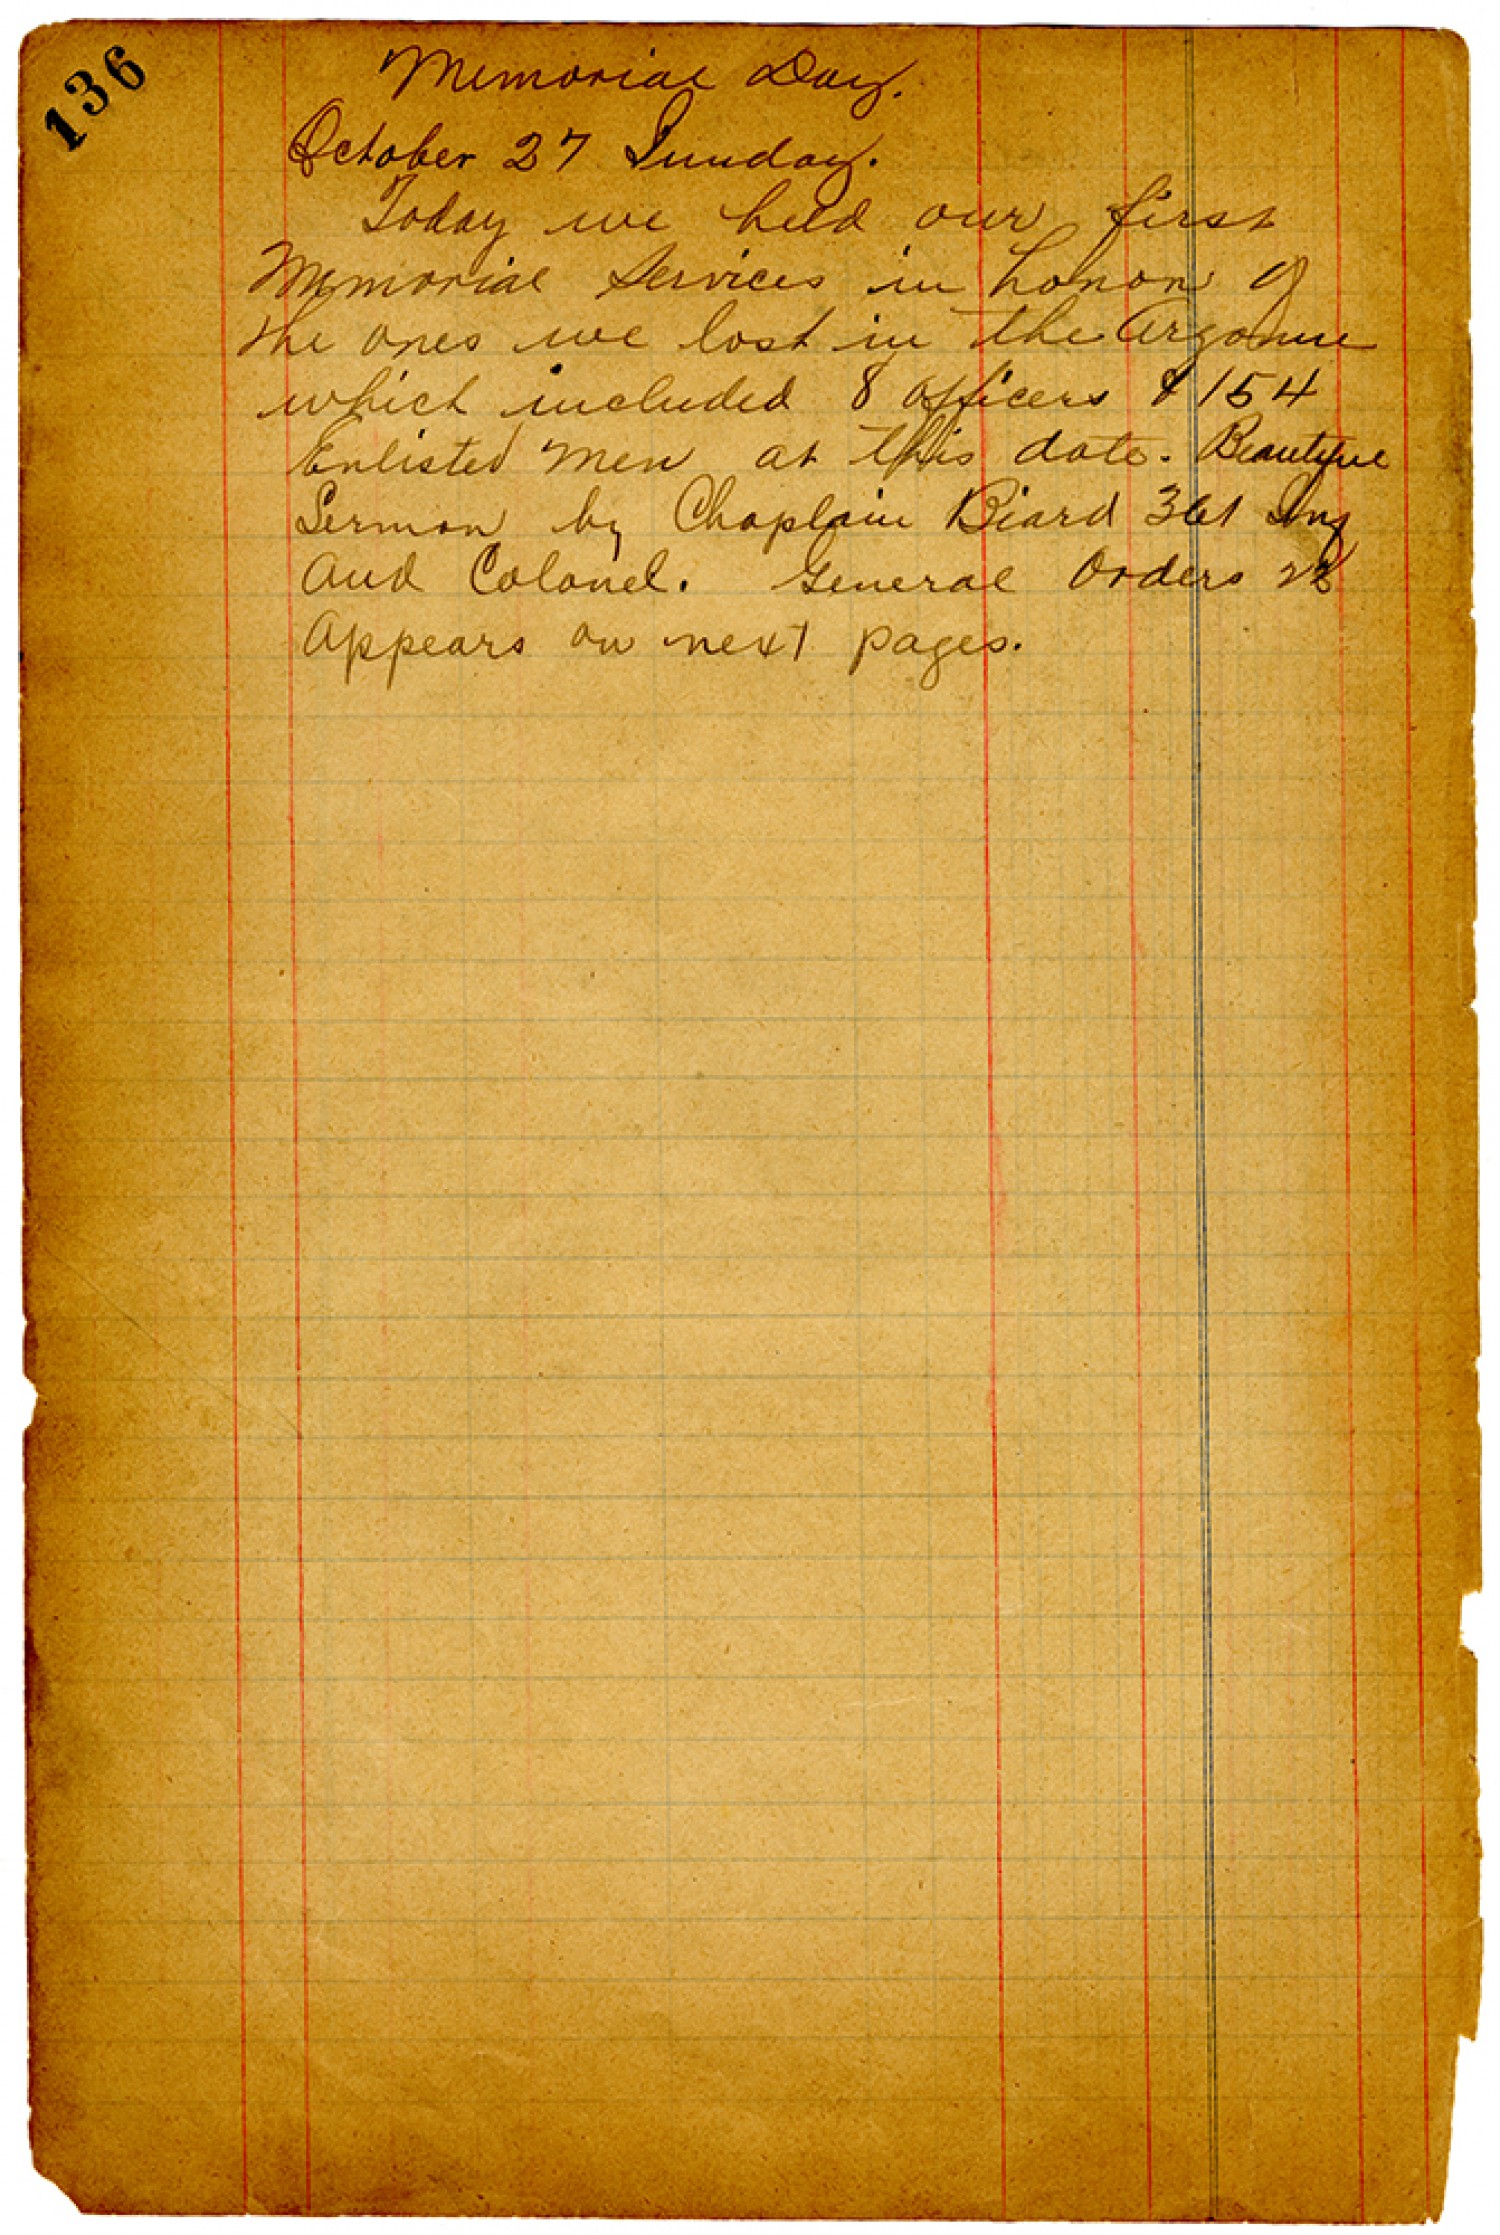 136
Memorial Day.
October 27 Sunday.
Today we held our first
Memorial Services in honor of
the ones we lost in the Argonne
which included 8 officers & 154
Enlisted Men at this date. Beautiful
Sermon by Chaplain Biard 361 Inf
And Colonel. General Orders
Appears on next pages.